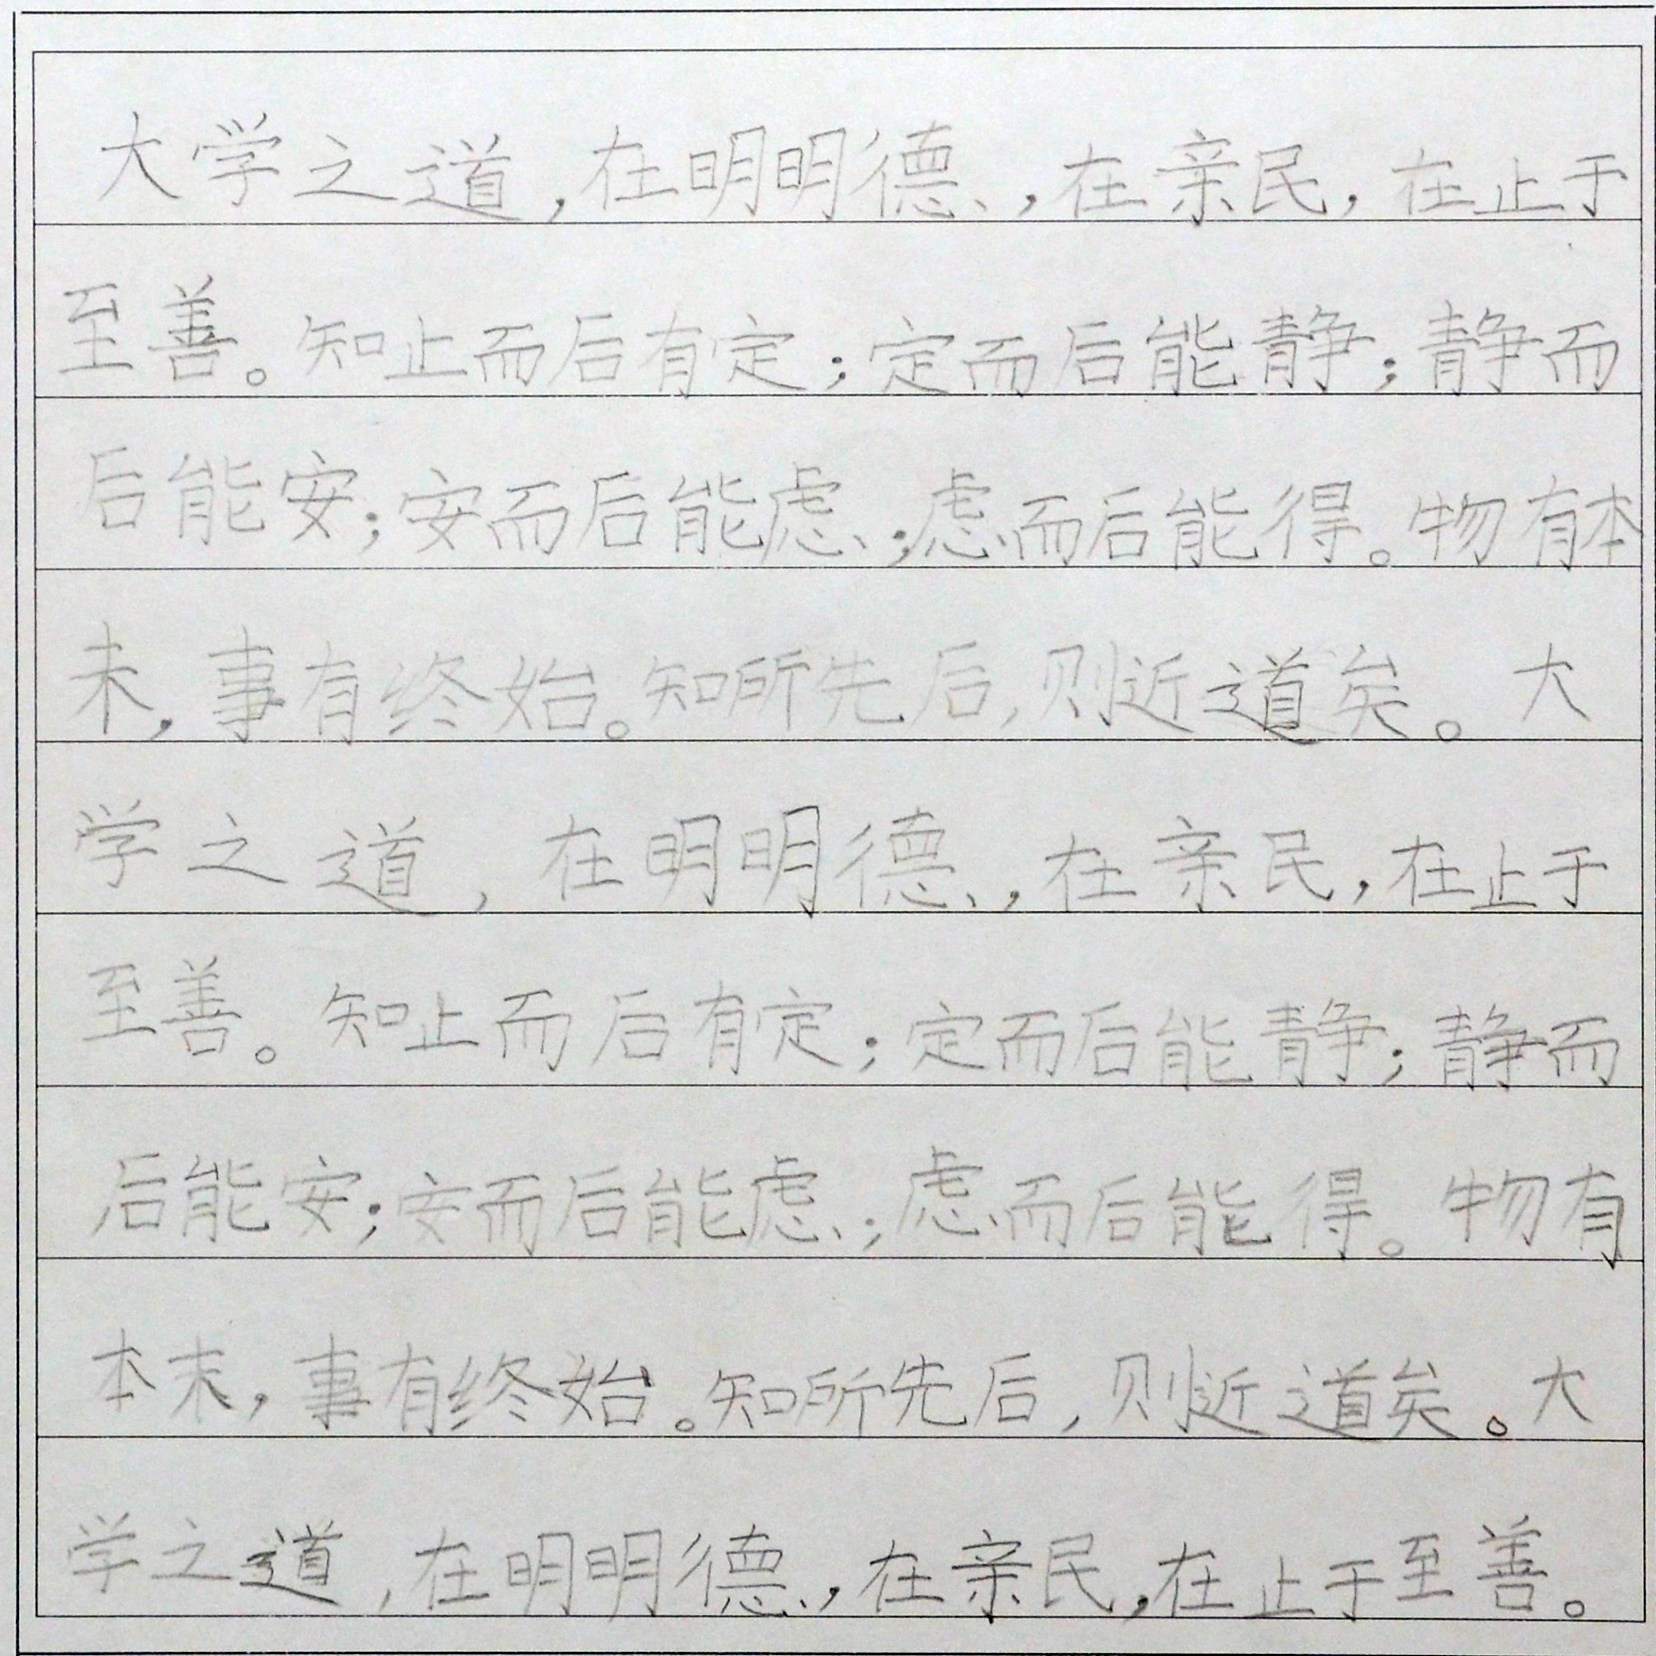 大学之道,在明明德,在亲民,在止于
至善。知止而后有定;定而后能静;静而
后能安;安而后能虑;虑而后能得。物有本
末,事有终始。知所先后,则近道矣。大
学之道,在明明德,在亲民,在止于
至善。知止而后有定;定而后能静;静而
后能安;安而后能虑;虑而后能得。物有
本末,事有终始。知所先后,则近道矣。大
学之道,在明明德,在亲民,在止于至善。